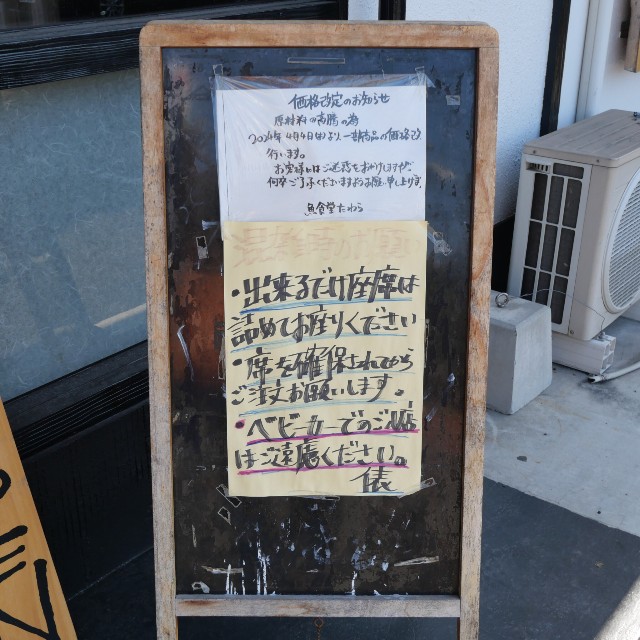 価格改定のお知らせ
原材料の高騰の為
2024年4月4日(木)より一部商品の価格改
行います。
お客様にはご迷惑をおかけしますが
何卒ご了承くださいますようお願い申し上げます。
魚食堂たわら
・出来るだけ座席は
詰めてお座りください
・席を確保されてから
ご注文お願いします。
・ベビーカーでのご入店
はご遠慮ください。
俵